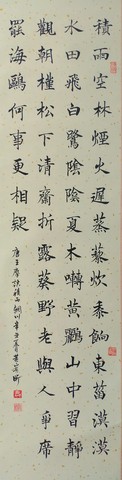 積雨空林煙火遲蒸藜炊黍餉東菑漠漠
水田飛白鷺陰陰夏木囀黃鸝山中習靜
觀朝槿松下清齋折露葵野老與人爭席
罷海鷗何事更相疑
唐王摩詰積雨輞川